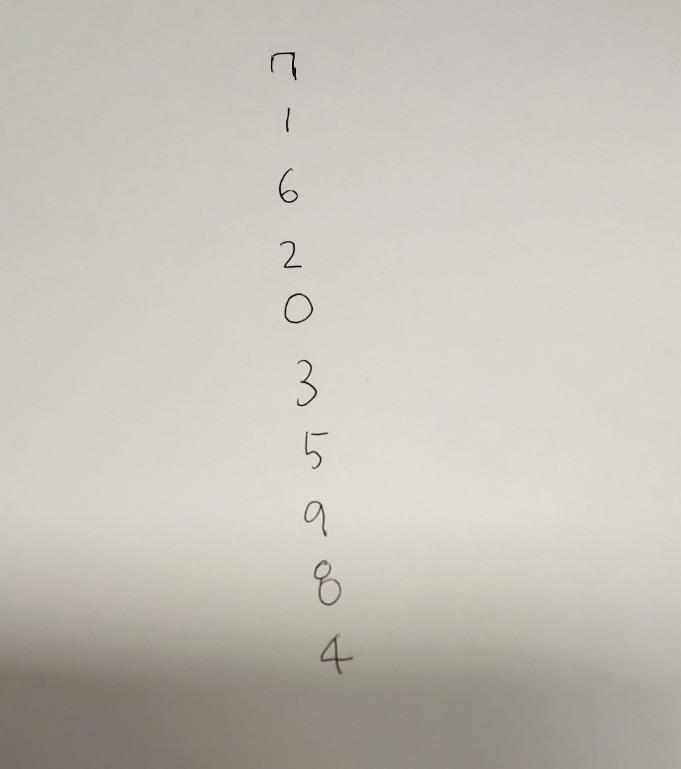 7
1
6
2
0
3
5
9
8
4